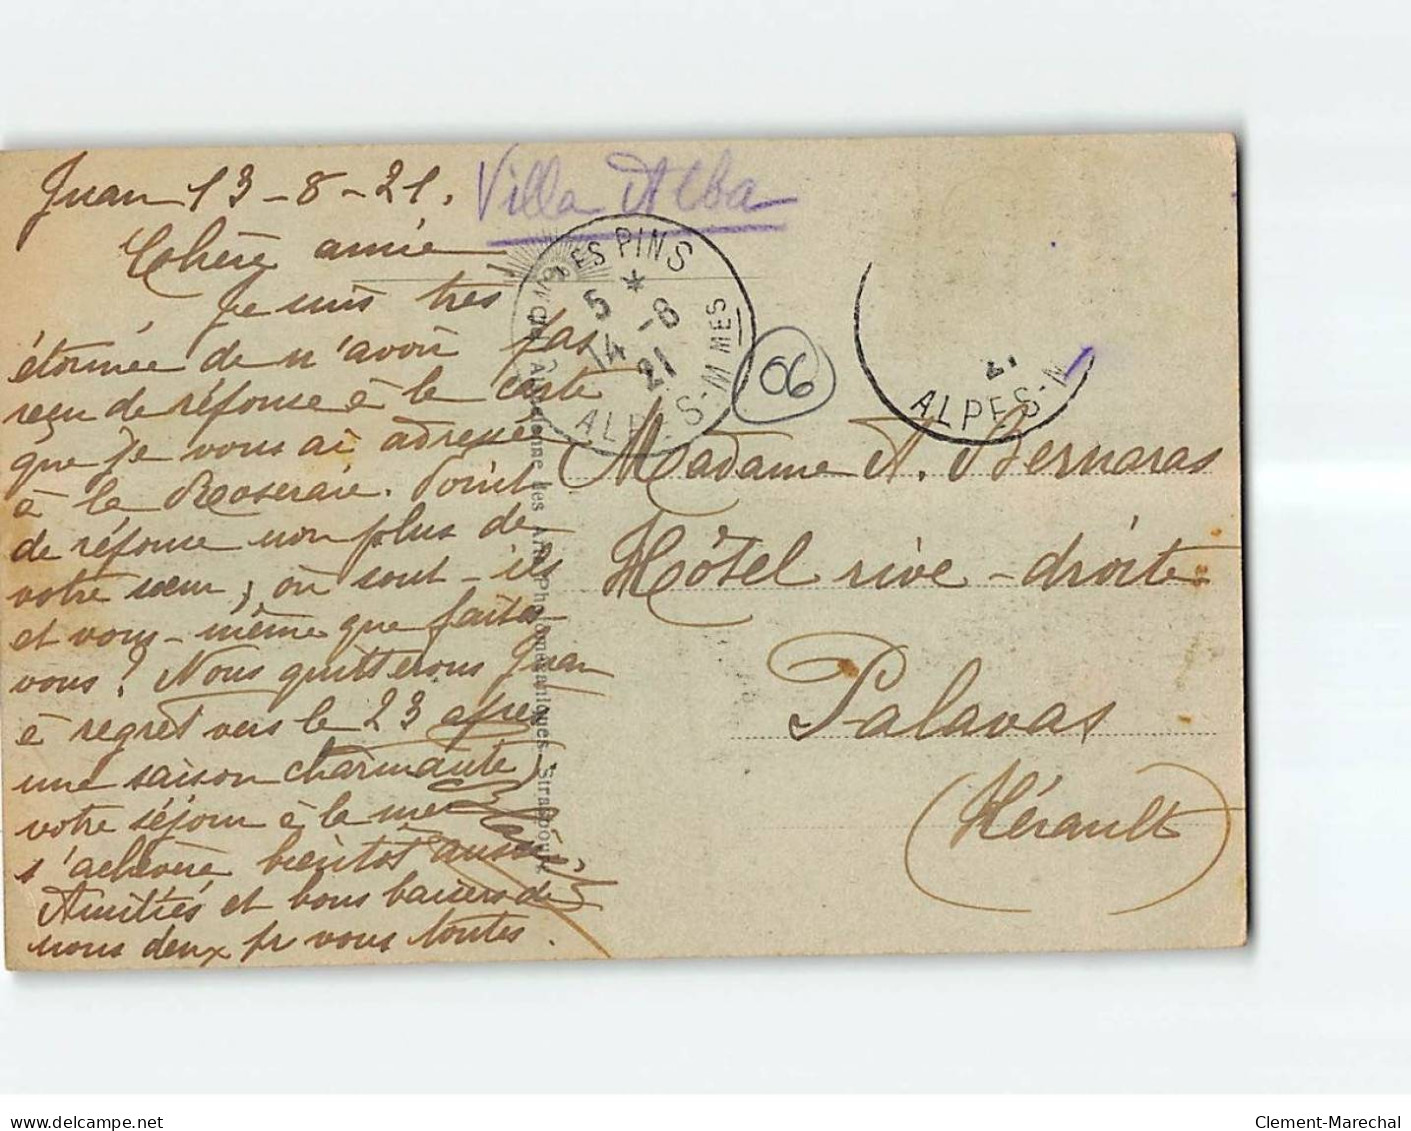 Juan 13-8-21.
Villa Alba
Chère amie
Je suis très
étonnée de n'avoir pas
reçu de réponse à la carte
que je vous ai adressée
à la Roseraie. Point
de réponse non plus de
votre sœur, où sont-ils
et vous-même que faites
vous? Nous quitterons Juan
à regret vers le 23 après
une saison charmante.
votre séjour à la mer
s'achève bientôt aussi
Amitiés et bons baisers de
nous deux pr vous toutes.
LES PINS
5 * -8
14 21
ALPES-M MES
06
21
ALPES-M
Alsacienne des Arts Photomécaniques - Strasbourg
Madame A. Bernaras
Hôtel rive-droite
Palavas
(Hérault)
delcampe.net
Clement-Marechal